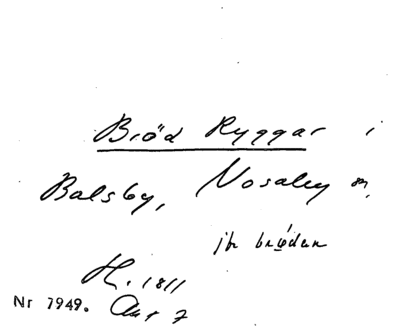 Bröd Ryggar i
Balsby, Nosaby sn,
jfr bröden
H. 1811
Nr 7949. Akt 7